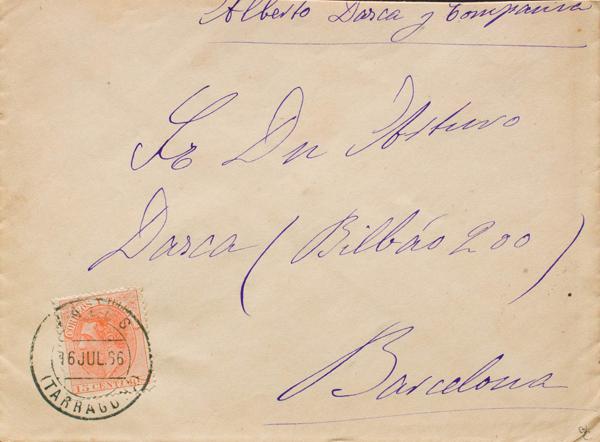 Alberto Dasca y Compañia
Sr Dn Arturo
Dasca (Bilbáo 200)
Barcelona
CORREOS
15 CENT
16 JUL.86
(TARRAGO